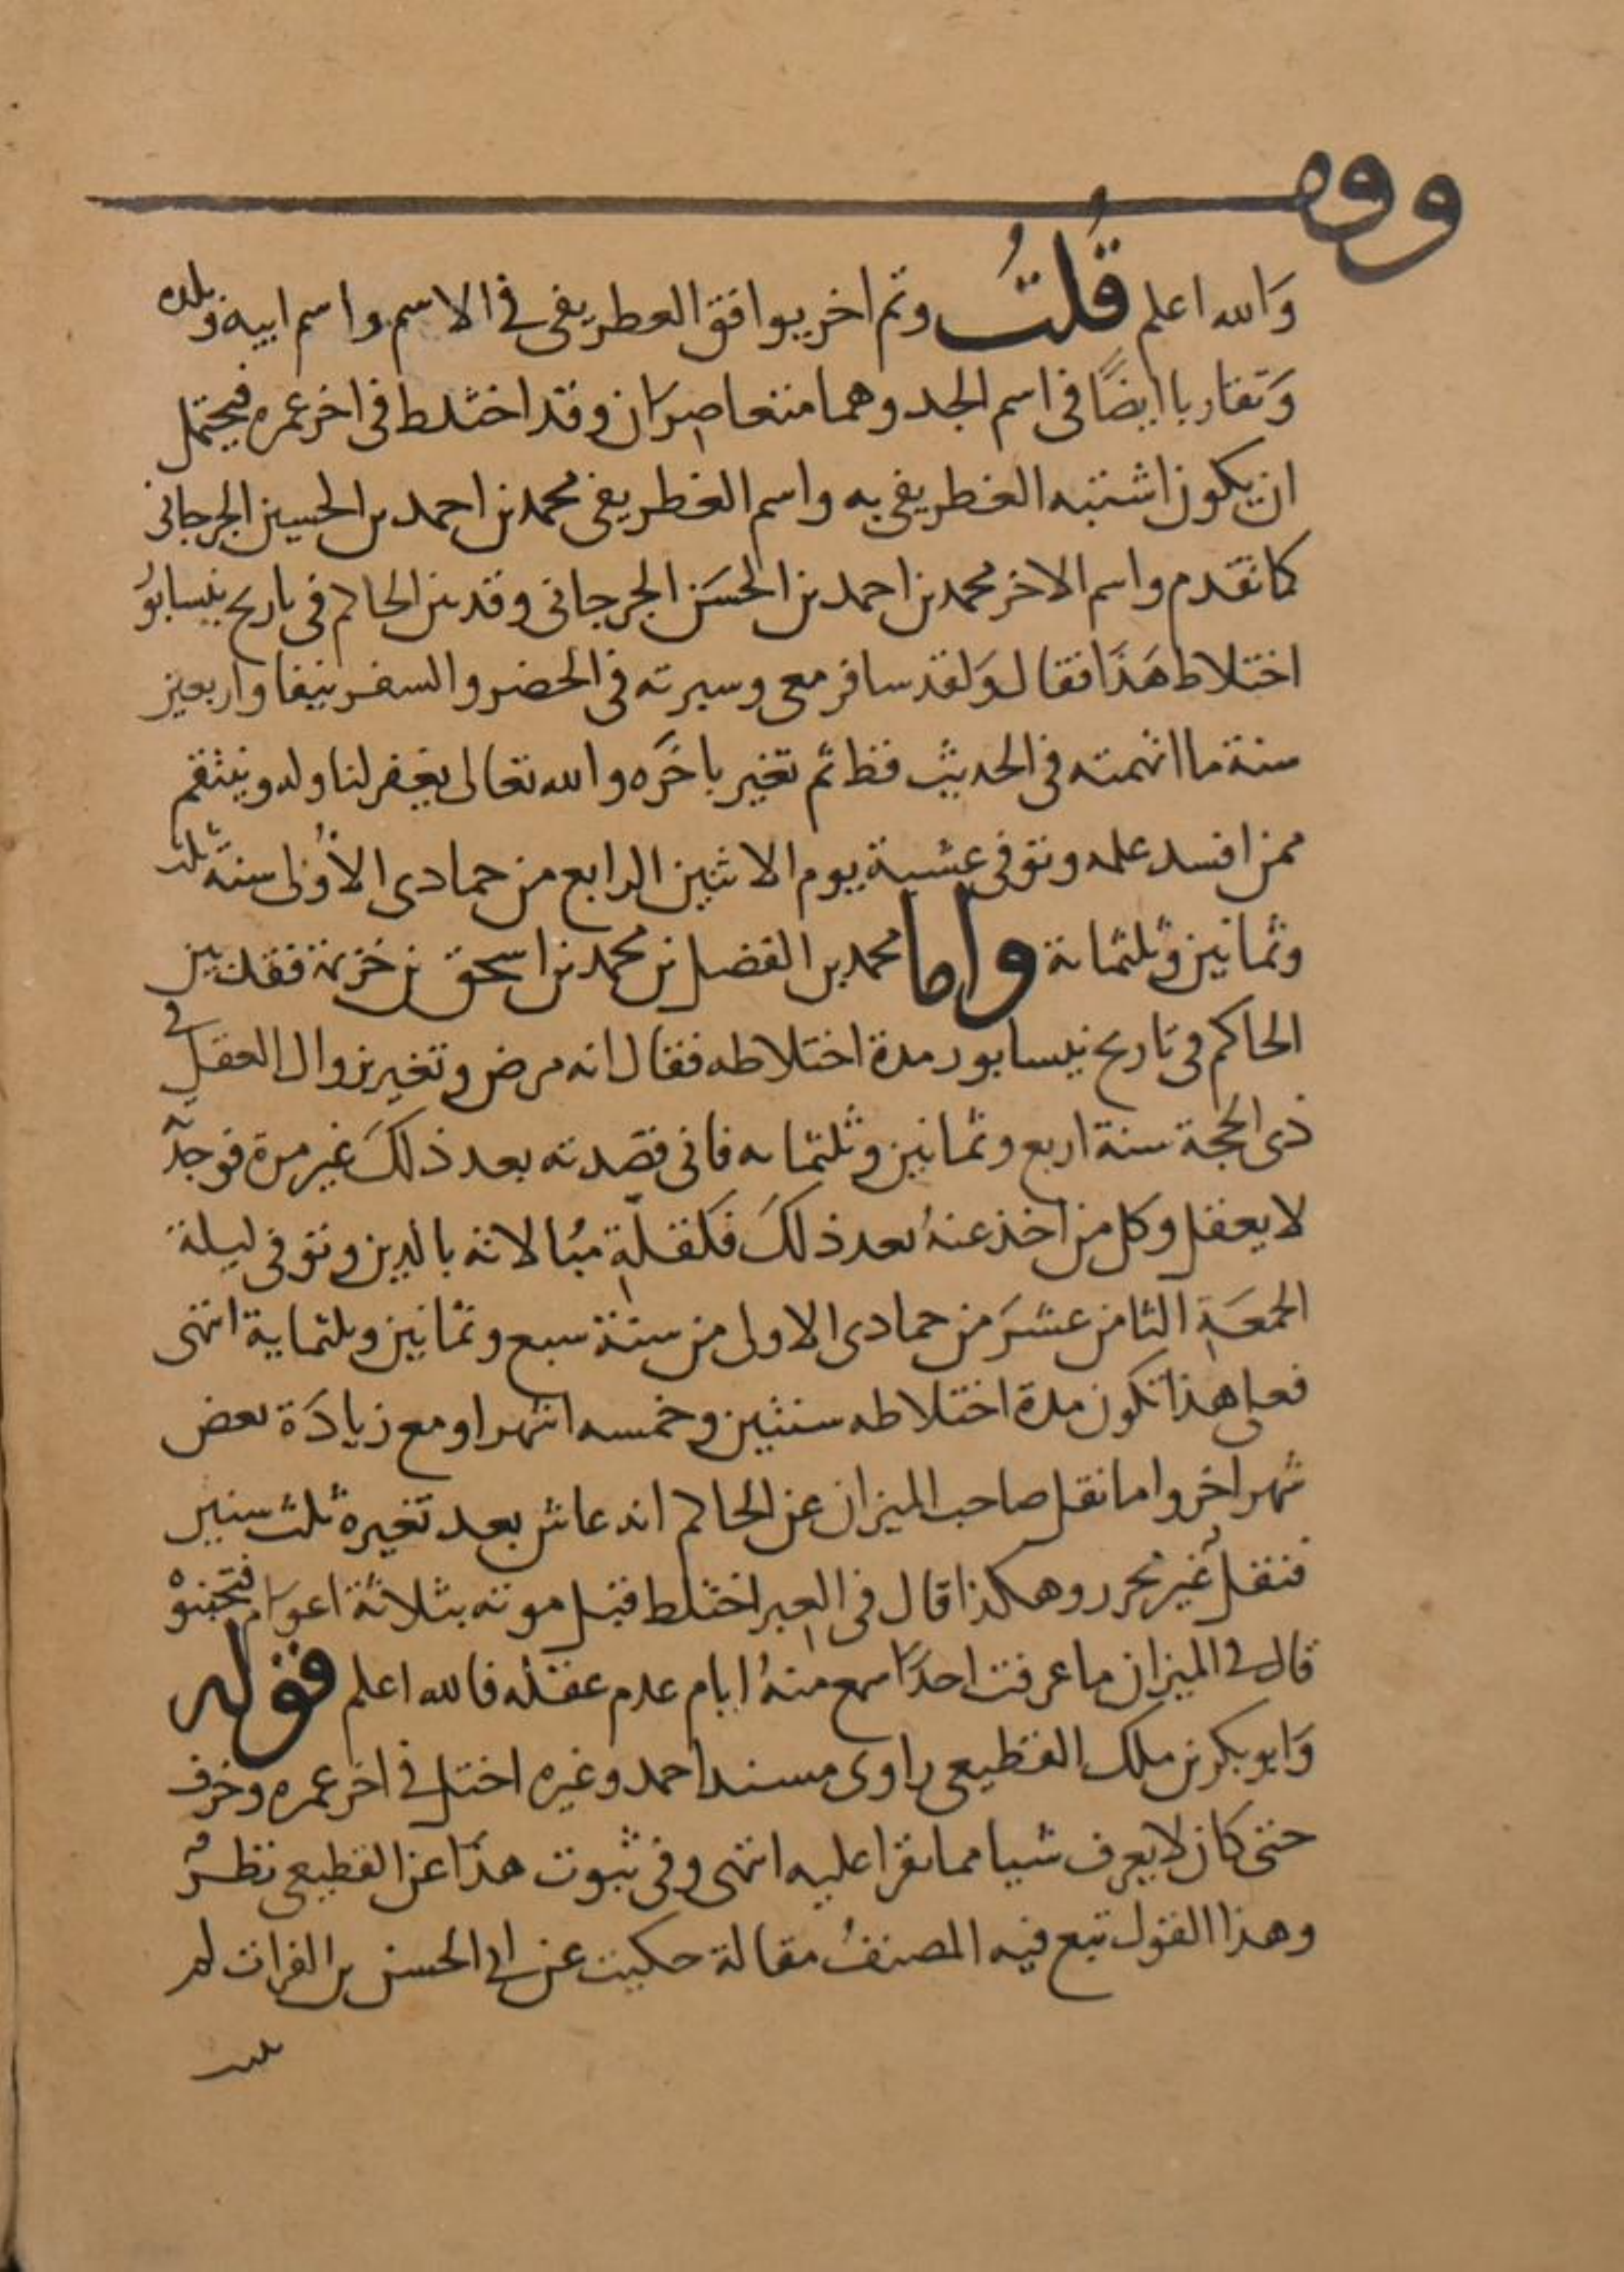 وقف
وَالله اعلم قُلتُ وثم اخر يوافق الغطريفى في الاسم واسم ابيه وبلده
وَتقاربا ايضًا فى اسم الجد وهما متعاصرَان وقد اختلط فى اخر عمره فيحتمل
ان يكون اشتبه الغطريفى به واسم الغطريفى محمد بن احمد بن الحسين الجرجانى
كما تقدم واسم الاخر محمد بن احمد بن الحسَن الجرجانى وقد بين الحاكم فى تاريخ نيسابوُر
اختلاط هَذَا فقال وَلقد سافر معى وسيرته فى الحضر والسفر نيفا واربعين
سنة ما اتهمته فى الحديث قط ثم تغير باخَره والله تعالى يغفر لنا وله وينتقم
ممن افسد علمه وتوفى عشية يوم الاثنين الرابع من جمادى الاوُلى سنة ثلث
وثمانين وثلثمائة واما محمد بن الفضل بن محمد بن اسحق بن خزيمة فقد بين
الحاكم فى تاريخ نيسابور مدة اختلاطه فقال انه مرض وتغير بزوال العقل في
ذى الحجة سنة اربع وثمانين وثلثمايه فانى قصدته بعد ذلكَ غير مرة فوجدته
لا يعقل وكل من اخذ عنهُ بعد ذلكَ فلقلّةِ مبُالاته بالدين وتوفى ليلة
الجمعَةِ الثامن عشرَ من جمادى الاولى من سنة سبع وثمانين وثلثماية انتهى
فعلى هذا تكون مدة اختلاطه سنتين وخمسه اشهر او مع زيادَة بعض
شهر اخر واما نقل صاحب الميزان عن الحاكم انه عاش بعد تغيره ثلث سنين
فنقلُ غير محرر وهكذا قال فى العِبر اختلط قبل موته بثلاثة اعوَام فتجنبوهْ
قال في الميزان ما عرفت احدًا سمع منهُ ايام عدم عقله فالله اعلم قوله
وَابو بكر بن ملك القطيعى راوى مسند احمد وغيره اختل في اخر عمره وخرف
حتى كان لا يعرف شيا مما يقرا عليه انتهى وفى ثبوت هذَا عن القطيعى نظرُ
وهذا القول تبع فيه المصنفُ مقالة حكيت عن ابي الحسن بن الفرات لم